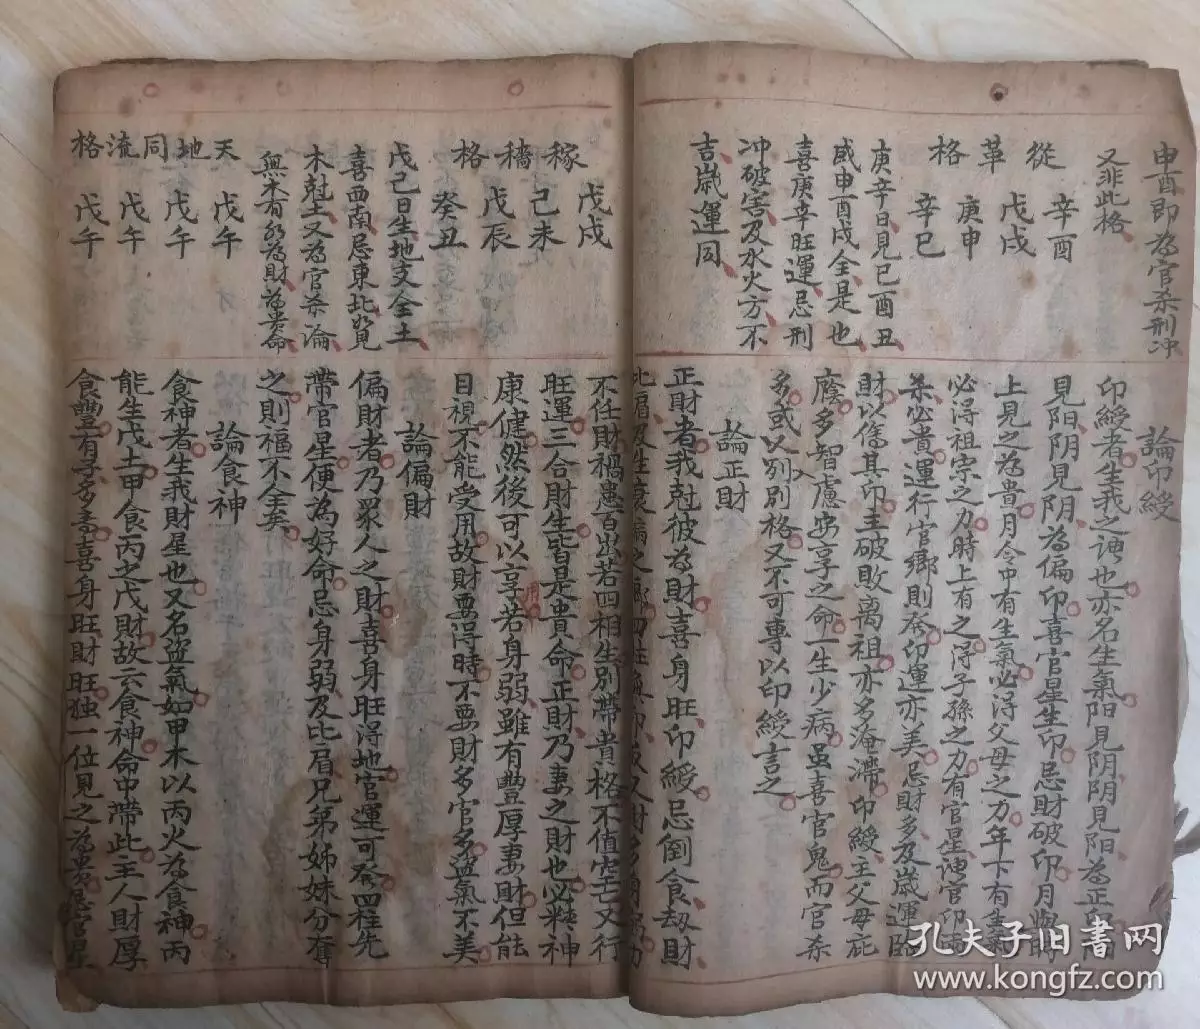 申酉即為官杀刑冲
又非此格
從革格
辛酉
戊戌
庚申
辛巳
庚辛日見巳酉丑
或申酉戌全是也
喜庚辛旺運忌刑
冲破害及水火方不
吉歲運同
論印綬
印綬者生我之神也亦名生氣阳見阴阴見阳為正印
見阳阴見阴為偏印喜官星生印忌財破印月與時
上見之為貴月令中有生氣必得父母之力年下有生氣
必得祖宗之力時上有之得子孫之力有官星
杀必貴運行官鄉則発印運亦美忌財多及歲運臨
財以傷其印主破敗离祖亦多淹滯印綬主父母庇
廕多智慮安享之命一生少病虽喜官鬼而官杀
多或入别别格又不可專以印綬言之
論正財
正財者我尅彼為財喜身旺印綬忌倒食劫財
稼穡格
戊戌
己未
戊辰
癸丑
戊己日生地支全土
喜西南忌東北如見
木尅土又為官杀論
無木有水為財為貴命
天地同流格
戊午
戊午
戊午
戊午
不任財禍患百出若四相生别帶貴格不值空亡又行
旺運三合財生皆是貴命正財乃妻之財也必精神
康健然後可以享用若身弱雖有豐厚妻財但能
目視不能受用故財要得時不要財多官多盜氣不美
論偏財
偏財者乃眾人之財喜身旺得地官運可発四柱先
帶官星便為好命忌身弱及比肩兄弟姊妹分奪
之則福不全矣
論食神
食神者生我財星也又名盜氣如甲木以丙火為食神丙
能生戊土甲食丙之戊財故云食神命中帶此主人財厚
食豐有子多壽喜身旺財旺独一位見之為貴忌官星
孔夫子旧书网
www.kongfz.com